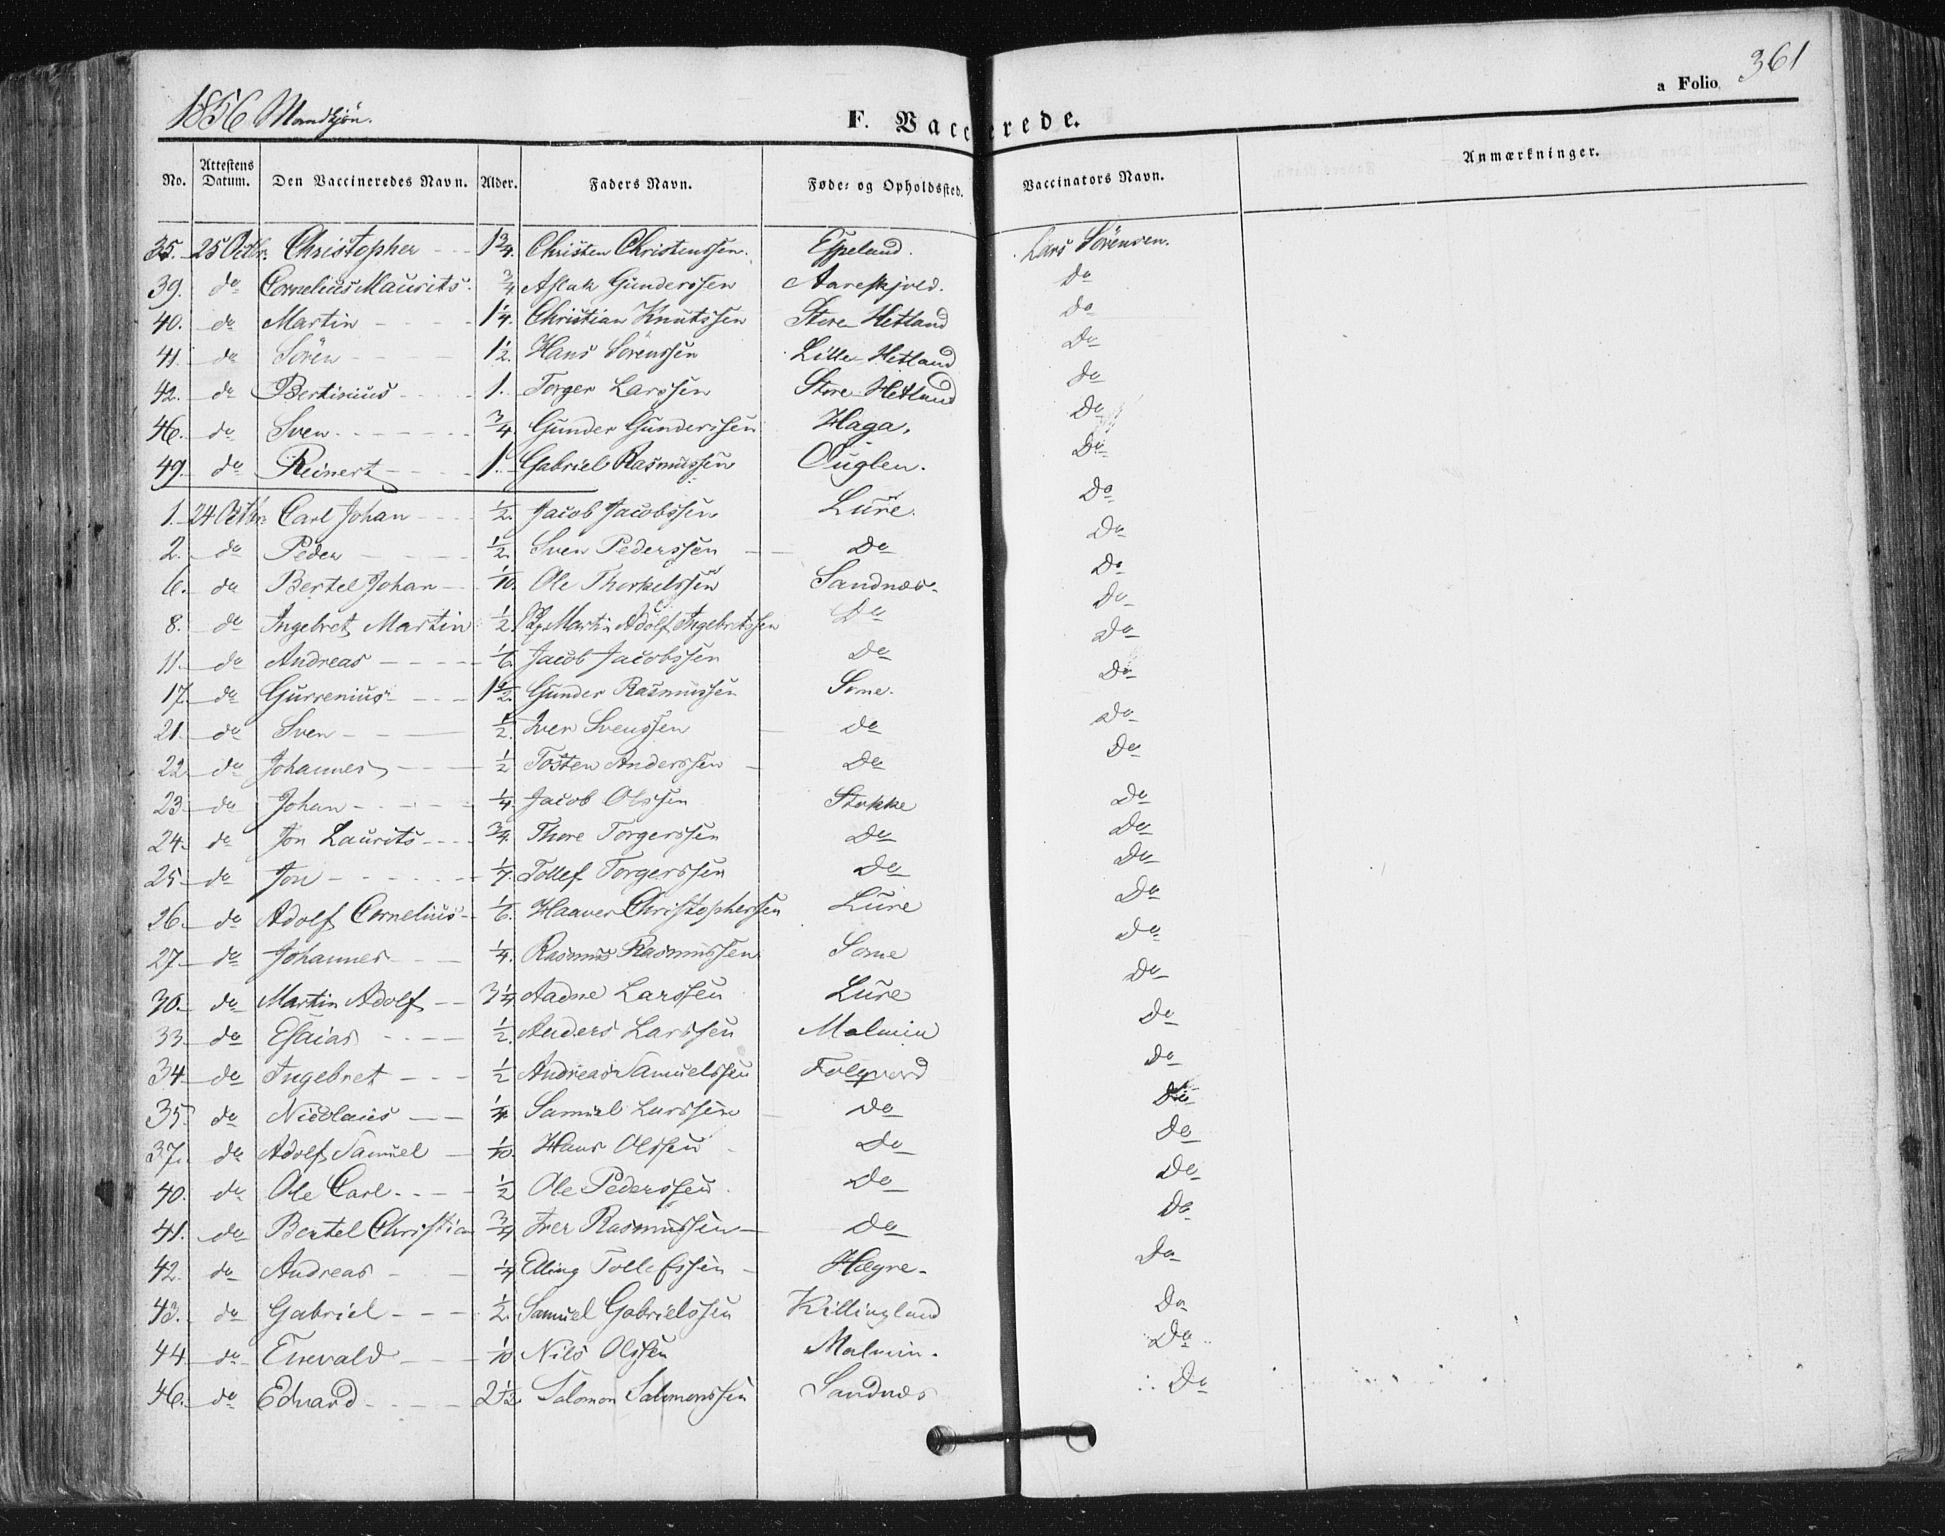 361
a Folio
1856 Mandkjön.
F. Vaccinerede.
No. Attestens Datum. Den Vaccineredes Navn. Alder. Faders Navn. Føde- og Opholdssted. Vaccinators Navn. Anmærkninger.
35. 25 Octbr. Christopher 1 3/4. Christen Christenssen. Espeland. Lars Sörensen.
39. do Cornelius Maurits. 3/4 Aslak Gunderssen Aareskjold. Do
40. do Martin 1 1/4. Christian Knutssen Store Hetland Do
41. do Sören 1 1/2. Hans Sörenssen Lille Hetland Do
42. do Bertinius 1. Torger Larssen Store Hetland Do
46. do Sven 3/4. Gunder Gunderssen Haga. Do
49. do Reinert 1. Gabriel Rasmussen Ouglen. Do
1. 24 Octbr. Carl Johan 1/2. Jacob Jacobssen Lure. Do
2. do Peder 1/2. Sven Pederssen Do Do
6. do Bertel Johan 1/10. Ole Thorkelssen Sandnæs. Do
8. do Ingebret Martin 1/2. Martin Adolf Ingebretssen Do Do
11. do Andreas 1/6. Jacob Jacobssen Do Do
17. do Gurrenius 1 1/2. Gunder Rasmussen Some. Do
21. do Sven 1/2. Iver Svenssen do Do
22. do Johannes 1/2 Tosten Anderssen Do Do
23. do Johan 1/4. Jacob Olssen Stokke Do
24. do Jon Laurits 3/4. Thore Torgerssen Do Do
25. do Jon 1/7. Tollef Torgerssen Do Do
26. do Adolf Cornelius 1/6. Haaver Christophersen Lure Do
27. do Johannes 1/4. Rasmus Rasmussen Some Do
30. do Martin Adolf 3 1/4 Aadne Larssen Lure Do
33. do Esaias 1/2. Anders Larssen Malmin Do
34. do Ingebret 1/2 Andreas Samuelssen Folqvord Do
35. do Nicolaus 1/4. Samuel Larssen Do Do
37. do Adolf Samuel 1/10. Hans Olssen Do Do
40. do Ole Carl 1/2 Ole Pederssen Do Do
41. do Bertel Christian 3/4 Iver Rasmussen Do Do
42. do Andreas 1/4 Elling Tollefssen Hægre. Do
43. do Gabriel 1/2. Samuel Gabrielssen Killingland Do
44. do Enevald 1/10 Nils Olssen Malmin. Do
46. do Edvard 2 1/2. Salomon Salomonssen Sandnæs Do